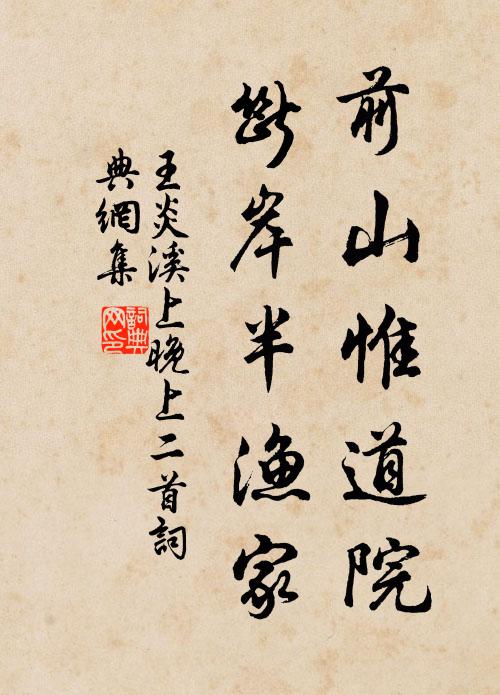 前山惟道院
斷岸半漁家
王炎溪上晚上二首詞
典網集
詞典
网印